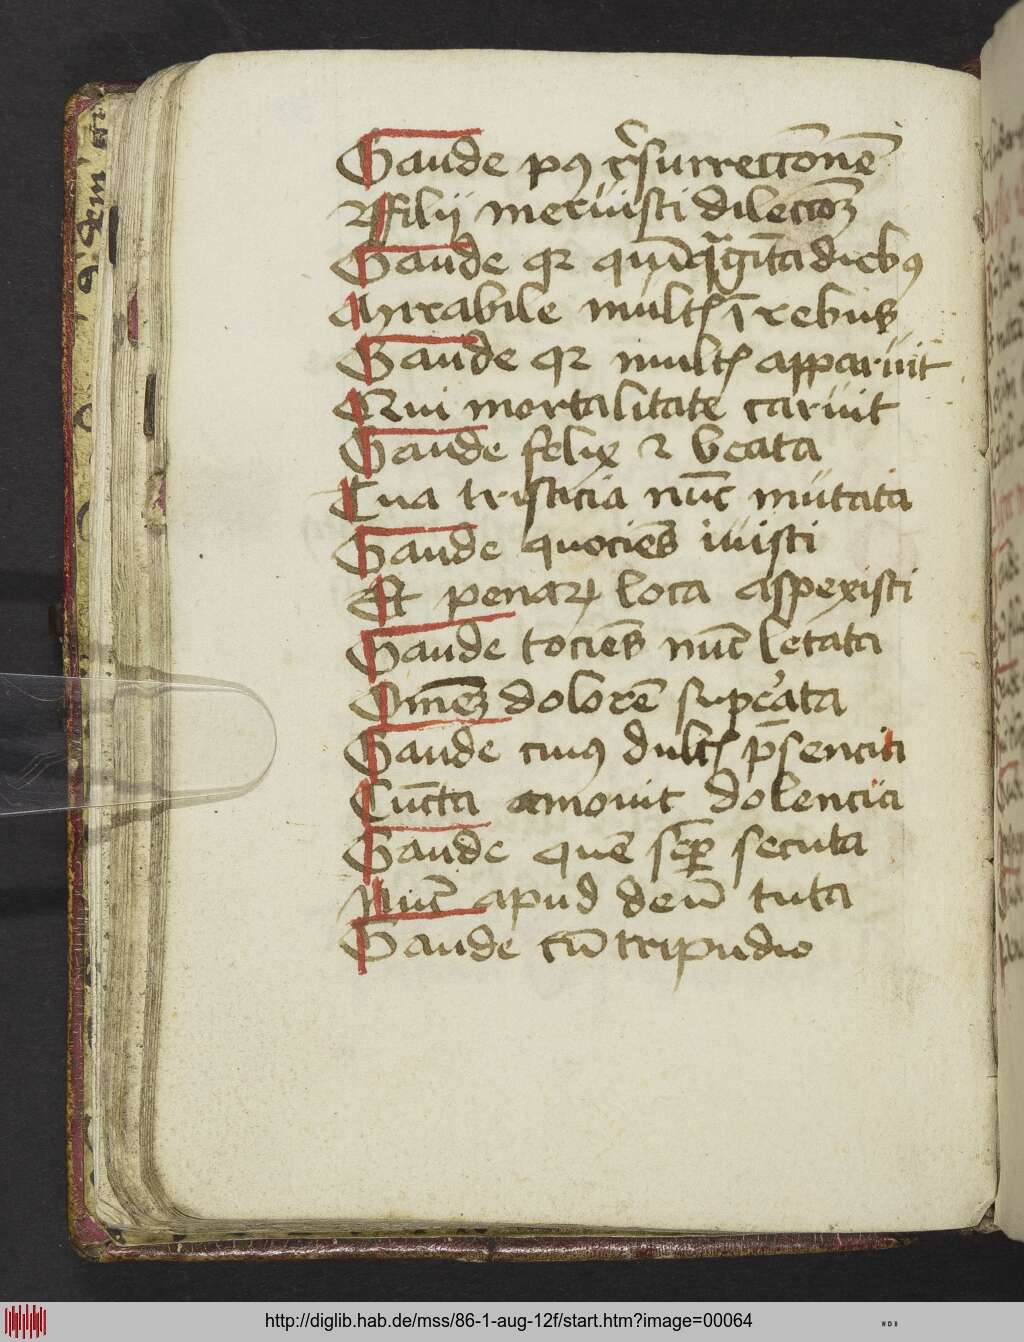 Gaude pꝰ rͥsurrectōnē
Filij meruisti dilectōꝫ
Gaude qꝛ quīqᵃgīta diebꝰ
Mirabile mult᷒ ī rebus
Gaude qꝛ mult᷒ apparuit
Qui mortalitate caruit
Gaude felix ⁊ beata
Tua tristicia nūc mutata
Gaude quociēs iuisti
Et penaꝝ loca aspexisti
Gaude tociēs nūc letata
Om̄eꝫ dolorē suꝑata
Gaude cuiꝰ dult᷒ p̄sencia
Cūcta amouit dolencia
Gaude quē sēꝑ secuta
Nūc apud deū tuta
Gaude cū tripudio
http://diglib.hab.de/mss/86-1-aug-12f/start.htm?image=00064